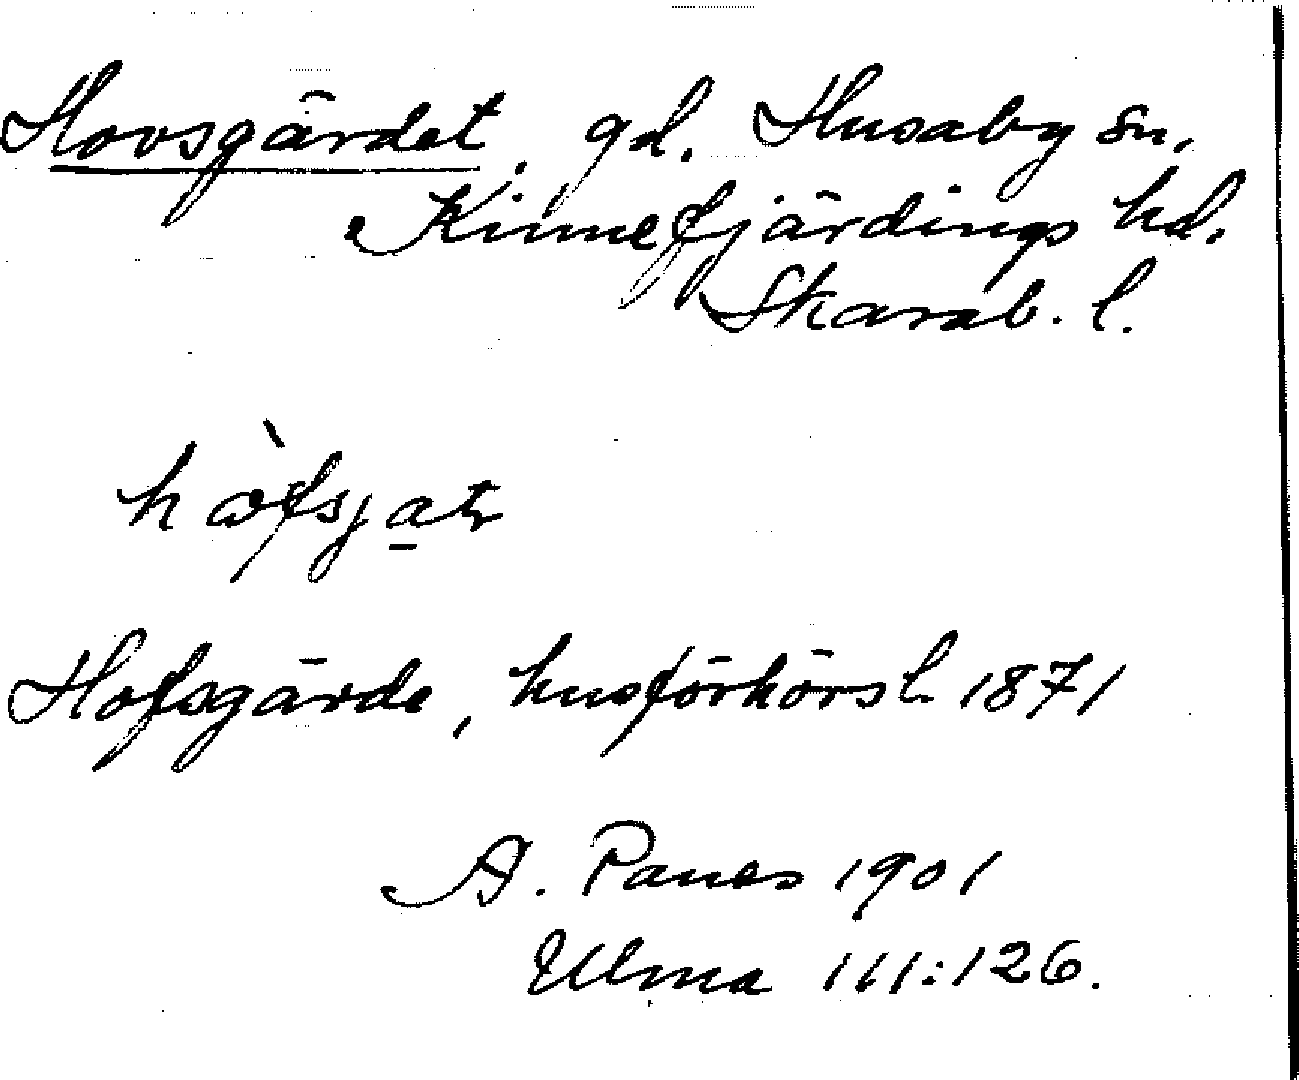 Hovsgärdet, gd. Husaby sn.
Kinnefjärdings hd.
Skarab. l.
hæ̀fsja̱tr
Hofsgärde, husförhörsl 1871
A. Ranes 1901
Ulma 111:126.